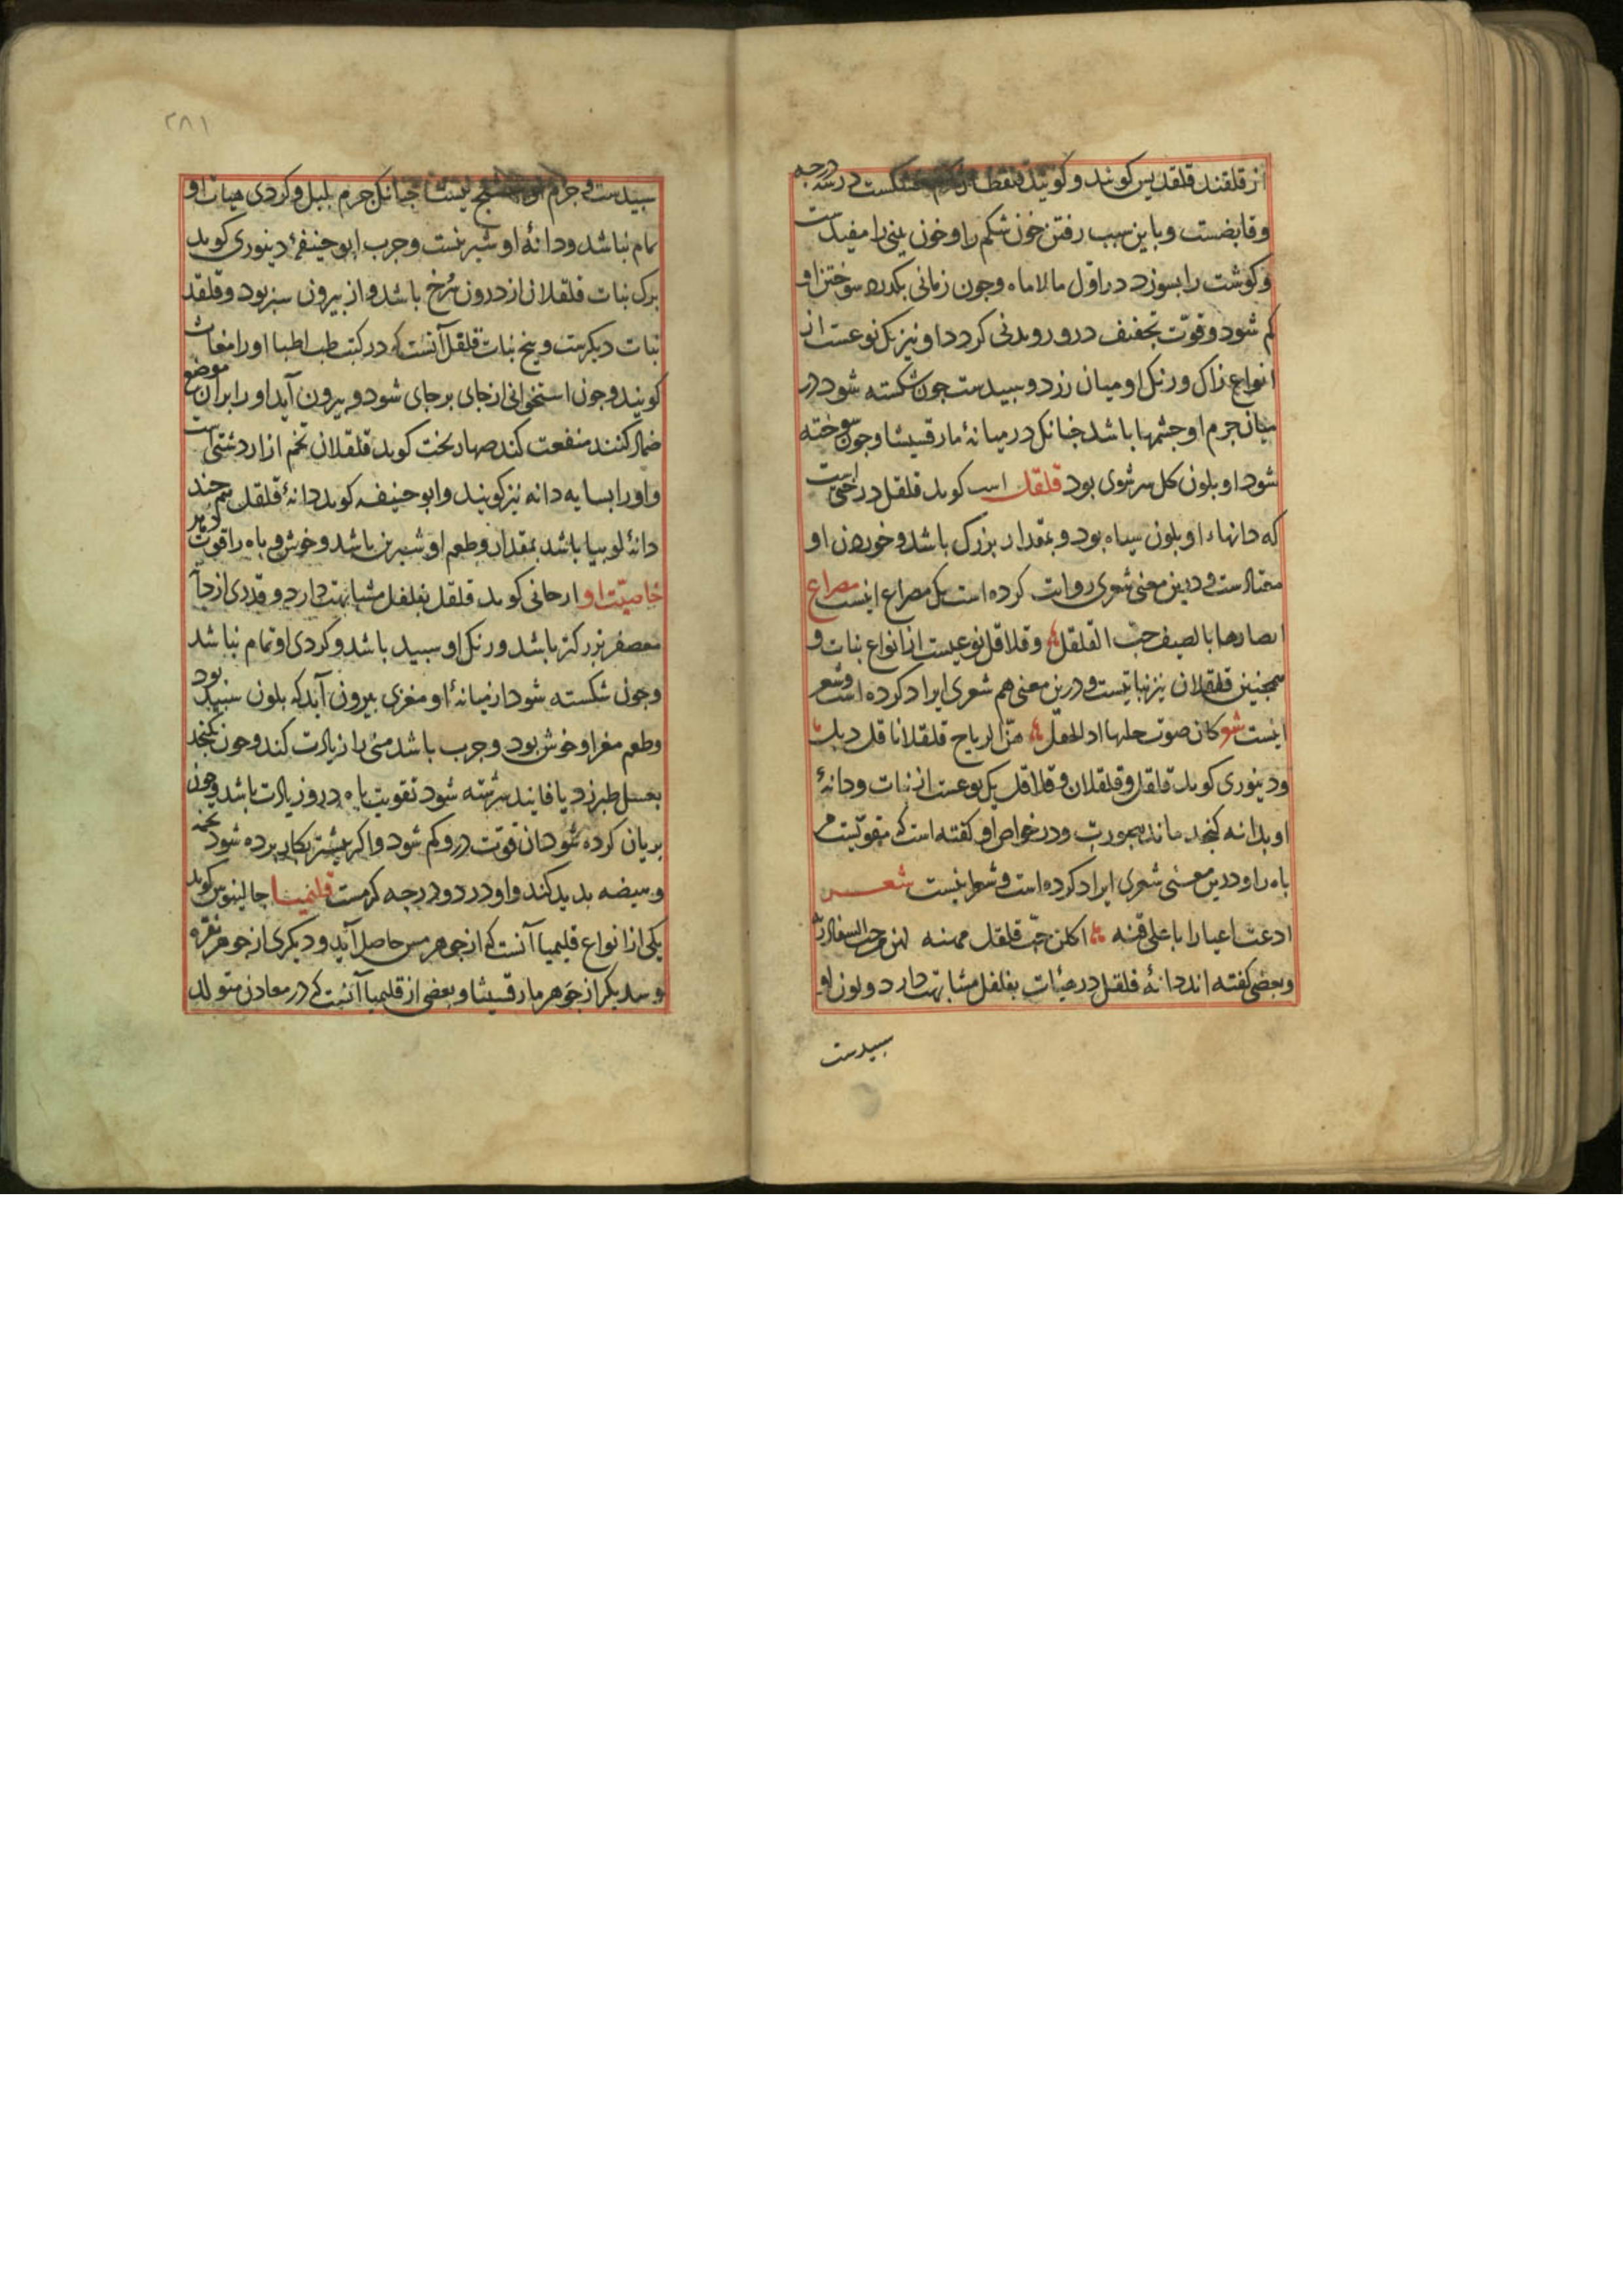 از قلقند قلقدیس کویند و کویند قلقطار کرم خشکست در سه درجه
و قابضست و باین سبب رفتن خون شکم را و خون بینی را مفیدست
و کوشت را بسوزد در اول مالاماه و چون زمانی بکدرد سوختن او
کم شود و قوّت تجفیف درو روبدنی کردد و او نیز یک نوعست از
انواع زاک و رنک او میان زرد و سبیدست جون شکسته شود در
میان جرم او جشمها باشد جنانک در میانهٔ مارقشیشا و جون سوخته
شود او بلون کل سرشوی بود قلقل کوید قلقل درختی است
که دانهاء او بلون سیاه بود و بمقدار بزرک باشد و خوردن او
معتادست و درین معنی شعری روایت کرده است یک مصراع اینست مصراع
بالصیف حب القلقل و قلاقل نوعیست از انواع نبات و
همجنین قلقلان نیز نباتیست و درین معنی هم شعری ایراد کرده است و شعر
اینست شعر کان صوت حلیها هزّ الریاح قلقلانا قل
و دینوری کوید قلقل و قلقلان و قلاقل یک نوعست از نبات و دانهٔ
او بدانه کنجد ماند بصورت و در خواص او کفته است که مقویست مر
باه را و درین معنی شعری ایراد کرده است و شعر اینست شعـــر
باعلی قنه اکلن حبّ قلقل
و بعضی کفته اند دانهٔ قلقل در هیئات بفلفل مشابهت دارد و لون او
سبیدست
۲۸۱
سبیدست و جرم او جنانک جرم بلبل و کردی میان او
تمام نباشد و دانهٔ او شیرینست و جرب ابو حنیفهٔ دینوری کوید
برک نبات قلقلان از درون سرخ باشد و از بیرون سبز بود و قلقل
نبات دیکرست و بیخ نبات قلقل آنست که در کتب طب اطبا او را مغاث
کویند و جون استخوانی از جای برجای شود و بیرون آید او را بران موضع
ضماد کنند منفعت کند صهاربخت کوید قلقلان تخم انار دشتی است
و او را بسایه دانه نیز کویند و ابو حنیفه کوید دانهٔ قلقل هم جند
دانهٔ لوبیا باشد بمقدار و طعم او شیرین باشد و خوش و باه را قوت دهد
خاصیّت او ارجانی کوید قلقل بفلفل مشابهت دارد و قدری از دانهٔ
معصفر بزرکتر باشد و رنک او سبید باشد و کردی او تمام نباشد
و جون شکسته شود از میانهٔ او مغزی بیرون آید که بلون سبید بود
و طعم مغز او خوش بود و جرب باشد منی را زیادت کند و جون بکنجد
بعسل طبرزد یا فانید سرشته شود تقویت باه درو زیادت باشد و جون
بریان کرده شود آن قوّت درو کم شود و اکر بیشتر بکار برده شود تخمه
و هیضه بدید کند و او در دو درجه کرمست قلیمیـا جالینوس کوید
یکی از انواع قلیمیا آنست که از جوهر مس حاصل آید و دیکری از جوهر نقره
و سدیکر از جوهر مارقشیشا و بعضی از قلیمیا آنست که در معادن متولد